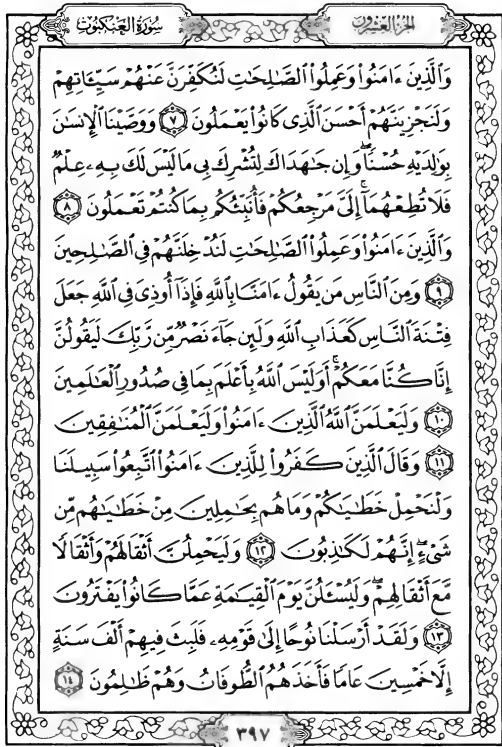 سُورَةُ العَنكَبُوتِ
الجُزْءُ العِشْرُونَ
وَٱلَّذِينَ ءَامَنُوا۟ وَعَمِلُوا۟ ٱلصَّـٰلِحَـٰتِ لَنُكَفِّرَنَّ عَنْهُمْ سَيِّـَٔاتِهِمْ
وَلَنَجْزِيَنَّهُمْ أَحْسَنَ ٱلَّذِى كَانُوا۟ يَعْمَلُونَ ٧ وَوَصَّيْنَا ٱلْإِنسَـٰنَ
بِوَٰلِدَيْهِ حُسْنًا ۖ وَإِن جَـٰهَدَاكَ لِتُشْرِكَ بِى مَا لَيْسَ لَكَ بِهِۦ عِلْمٌ
فَلَا تُطِعْهُمَآ ۚ إِلَىَّ مَرْجِعُكُمْ فَأُنَبِّئُكُم بِمَا كُنتُمْ تَعْمَلُونَ ٨
وَٱلَّذِينَ ءَامَنُوا۟ وَعَمِلُوا۟ ٱلصَّـٰلِحَـٰتِ لَنُدْخِلَنَّهُمْ فِى ٱلصَّـٰلِحِينَ
٩ وَمِنَ ٱلنَّاسِ مَن يَقُولُ ءَامَنَّا بِٱللَّهِ فَإِذَآ أُوذِىَ فِى ٱللَّهِ جَعَلَ
فِتْنَةَ ٱلنَّاسِ كَعَذَابِ ٱللَّهِ وَلَئِن جَآءَ نَصْرٌ مِّن رَّبِّكَ لَيَقُولُنَّ
إِنَّا كُنَّا مَعَكُمْ ۚ أَوَلَيْسَ ٱللَّهُ بِأَعْلَمَ بِمَا فِى صُدُورِ ٱلْعَـٰلَمِينَ
١٠ وَلَيَعْلَمَنَّ ٱللَّهُ ٱلَّذِينَ ءَامَنُوا۟ وَلَيَعْلَمَنَّ ٱلْمُنَـٰفِقِينَ
١١ وَقَالَ ٱلَّذِينَ كَفَرُوا۟ لِلَّذِينَ ءَامَنُوا۟ ٱتَّبِعُوا۟ سَبِيلَنَا
وَلْنَحْمِلْ خَطَـٰيَـٰكُمْ وَمَا هُم بِحَـٰمِلِينَ مِنْ خَطَـٰيَـٰهُم مِّن
شَىْءٍ ۖ إِنَّهُمْ لَكَـٰذِبُونَ ١٢ وَلَيَحْمِلُنَّ أَثْقَالَهُمْ وَأَثْقَالًا
مَّعَ أَثْقَالِهِمْ ۖ وَلَيُسْـَٔلُنَّ يَوْمَ ٱلْقِيَـٰمَةِ عَمَّا كَانُوا۟ يَفْتَرُونَ
١٣ وَلَقَدْ أَرْسَلْنَا نُوحًا إِلَىٰ قَوْمِهِۦ فَلَبِثَ فِيهِمْ أَلْفَ سَنَةٍ
إِلَّا خَمْسِينَ عَامًا فَأَخَذَهُمُ ٱلطُّوفَانُ وَهُمْ ظَـٰلِمُونَ ١٤
٣٩٧